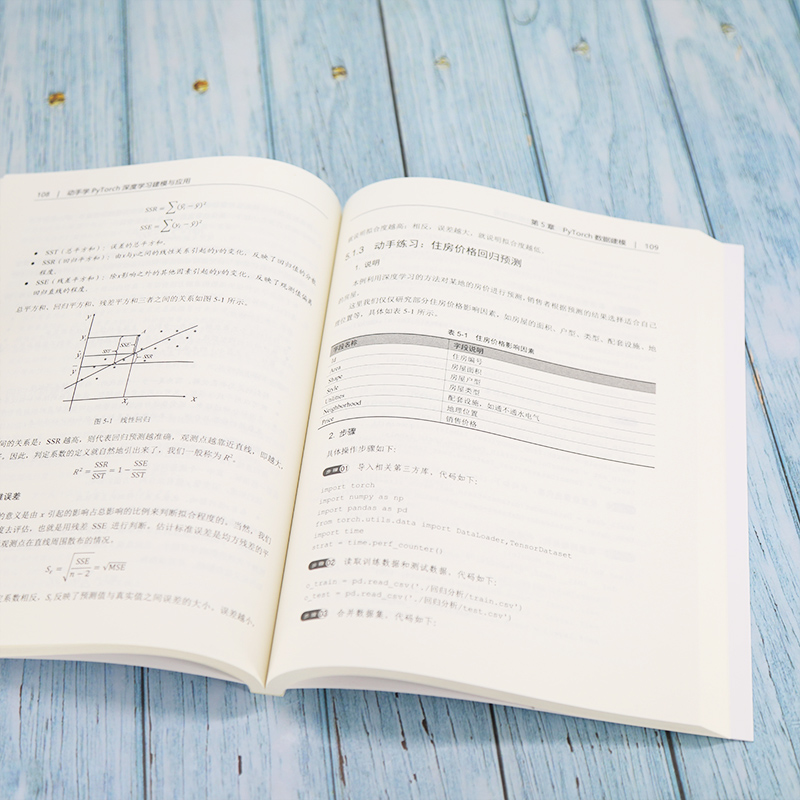 108 | 动手学 PyTorch 深度学习建模与应用
SSR = ∑(ŷᵢ − ȳ)²
SSE = ∑(yᵢ − ŷᵢ)²
• SST（总平方和）：误差的总平方和。
• SSR（回归平方和）：由x与y之间的线性关系引起的y的变化，反映了回归值的分散
程度。
• SSE（残差平方和）：除x影响之外的其他因素引起的y的变化，反映了观测值偏离
回归直线的程度。
总平方和、回归平方和、残差平方和三者之间的关系如图 5-1 所示。
y
SST
SSE
SSR
x
图 5-1 线性回归
间的关系是：SSR 越高，则代表回归预测越准确，观测点越靠近直线，即越大，
因此，判定系数的定义就自然地引出来了，我们一般称为 R²。
R² = SSR/SST = 1 − SSE/SST
准误差
的意义是由 x 引起的影响占总影响的比例来判断拟合程度的。当然，我们
度去评估，也就是用残差 SSE 进行判断。估计标准误差是均方残差的平
观测点在直线周围散布的情况。
Sₑ = √(SSE/(n − 2)) = √MSE
系数相反，Sₑ 反映了预测值与真实值之间误差的大小，误差越小，
第 5 章 PyTorch 数据建模 | 109
就说明拟合度越高；相反，误差越大，就说明拟合度越低。
5.1.3 动手练习：住房价格回归预测
1. 说明
本例利用深度学习的方法对某地的房价进行预测，销售者根据预测的结果选择适合自己
的房屋。
这里我们仅仅研究部分住房价格影响因素，如房屋的面积、户型、类型、配套设施、地
理位置等，具体如表 5-1 所示。
表 5-1 住房价格影响因素
字段名称 字段说明
Id 住房编号
Area 房屋面积
Shape 房屋户型
Style 房屋类型
Utilities 配套设施，如通不通水电气
Neighborhood 地理位置
Price 销售价格
2. 步骤
具体操作步骤如下：
步骤 01 导入相关第三方库，代码如下：
import torch
import numpy as np
import pandas as pd
from torch.utils.data import DataLoader,TensorDataset
import time
strat = time.perf_counter()
步骤 02 读取训练数据和测试数据，代码如下：
o_train = pd.read_csv('./回归分析/train.csv')
o_test = pd.read_csv('./回归分析/test.csv')
步骤 03 合并数据集，代码如下：